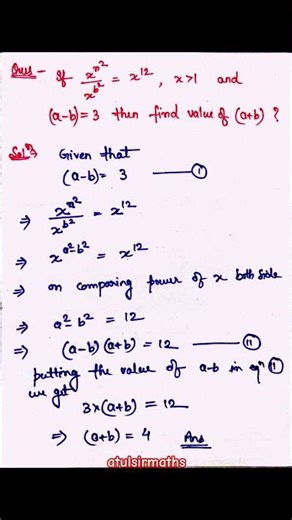 Ques - If x^a² / x^b² = x^12, x>1 and
(a-b) = 3 then find value of (a+b) ?
Solⁿ⇒ Given that
(a-b) = 3 —— ①
⇒ x^a² / x^b² = x^12
⇒ x^a²-b² = x^12
⇒ on comparing power of x both side
⇒ a²-b² = 12
⇒ (a-b)(a+b) = 12 —— ⑪
putting the value of a-b in eqⁿ ⑪
we get
3×(a+b) = 12
⇒ (a+b) = 4 Ans
atulsirmaths